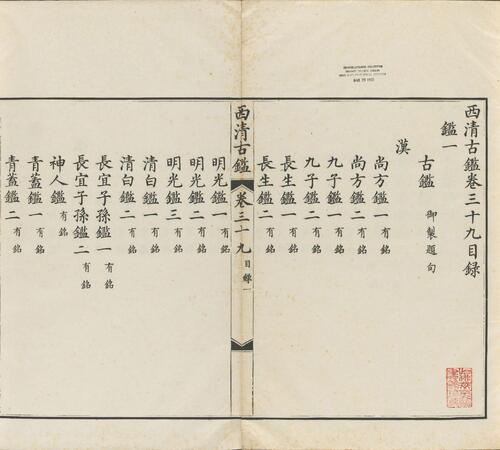 西清古鑑卷三十九目録
鑑一
古鑑 御製題句
漢
尚方鑑一 有銘
尚方鑑二 有銘
九子鑑一 有銘
九子鑑二 有銘
長生鑑一 有銘
長生鑑二 有銘
西清古鑑 卷三十九 目録 一
明光鑑一 有銘
明光鑑二 有銘
明光鑑三 有銘
清白鑑一 有銘
清白鑑二 有銘
長宜子孫鑑一 有銘
長宜子孫鑑二 有銘
神人鑑 有銘
青蓋鑑一 有銘
青蓋鑑二 有銘